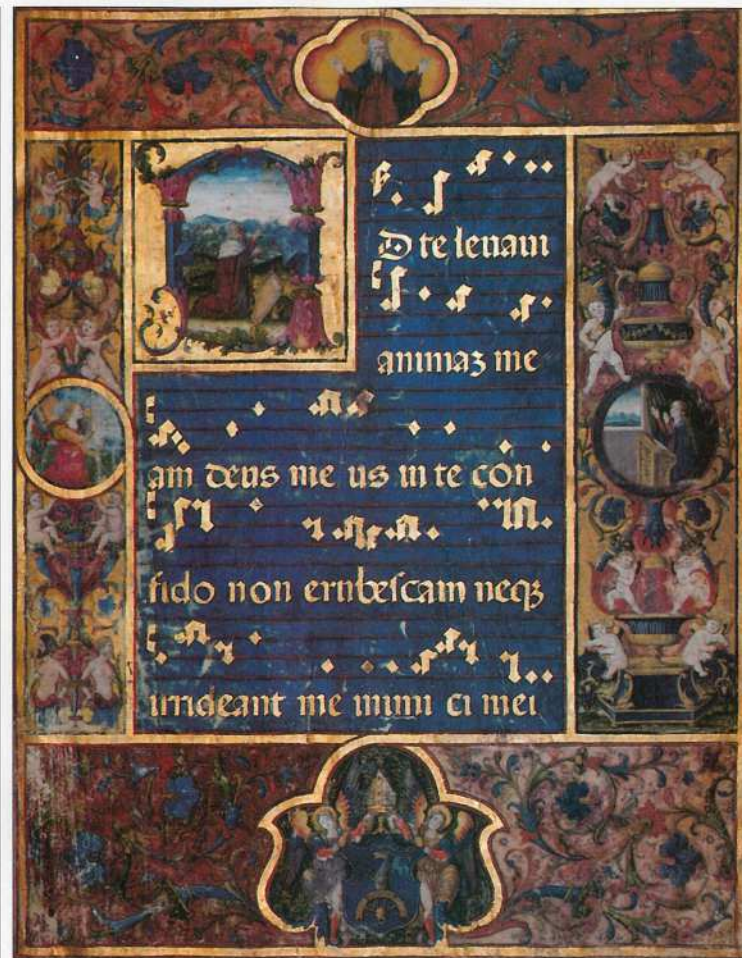 AD te leuaui
animaʒ me
am deus me us in te con
fido non erubescam neqʒ
irrideant me inimi ci mei